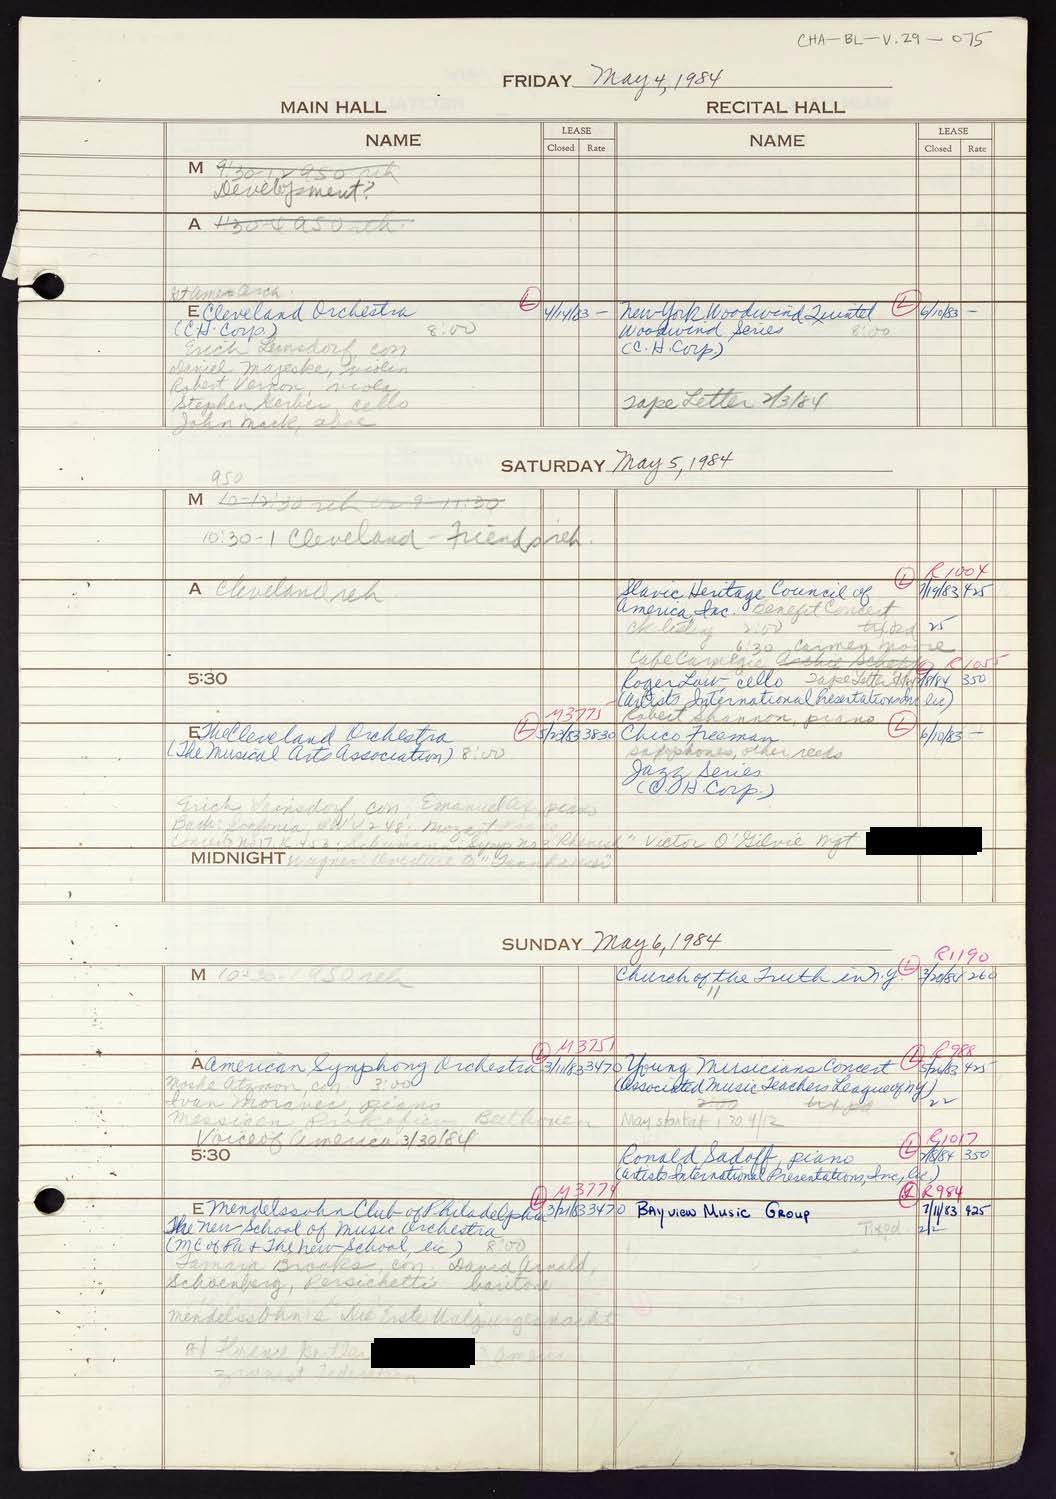 CHA-BL-V.29-075
FRIDAY May 4, 1984
MAIN HALL
RECITAL HALL
NAME
LEASE
Closed Rate
NAME
LEASE
Closed Rate
M 9:30-12 ASO reh
Development?
A 1:30-4 ASO reh.
E Cleveland Orchestra
(C.H. Corp.) 8:00
L 4/14/83 -
Erich Leinsdorf, con
Daniel Majeske, violin
Robert Vernon, viola
Stephen Geber, cello
John Mack, oboe
New York Woodwind Quintet
L 6/10/83 -
Woodwind Series 8:00
(C.H. Corp.)
Tape Letter 2/3/84
SATURDAY May 5, 1984
ASO
M 10-12:30 reh or 9-11:30
10:30-1 Cleveland - Friends reh.
A Cleveland reh
R1004
Slavic Heritage Council of
L 7/19/83 425
America Inc. Benefit Concert
2:00 25
6:30 Carmen Moore
Cafe Carnegie
5:30
R1055
Roger Low cello Tape Letter
350
(Artists International Presentations Inc lic)
Robert Shannon, piano
M3775
E The Cleveland Orchestra
L 5/23/83 3830
(The Musical Arts Association) 8:00
Chico Freeman
L 6/10/83 -
saxophones, other reeds
Jazz Series
(C.H. Corp.)
Erich Leinsdorf, con; Emanuel Ax, piano
Bach: Sinfonia, Mozart
Concerto No 17, K.453; Schumann: Symp No 3 "Rhenish"
Victor O'Gilvie Mgt
MIDNIGHT
Wagner: Overture to "Tannhauser"
SUNDAY May 6, 1984
M 10-12:30-1 ASO reh
R1190
Church of the Truth in N.Y.
L 3/20/84 260
11
M3751
A American Symphony Orchestra
L 3/11/83 3470
Moshe Atzmon, con 3:00
Ivan Moravec, piano
Messiaen Prokofiev Beethoven
Voice of America 3/30/84
R988
Young Musicians Concert
L 5/26/83 425
(Associated Music Teachers League of NY)
2:00
22
May start at 1:30 4/12
5:30
R1017
Ronald Sadoff, piano
L 350
(Artists International Presentations, Inc, lic)
M3774
E Mendelssohn Club of Philadelphia
L 3/21/83 3470
The New School of Music Orchestra
(MC of Pa + The New School, lic) 8:00
Tamara Brooks, con. David Arnold,
Schoenberg, Persichetti baritone
Mendelssohn's Die Erste Walpurgisnacht
R984
BAYVIEW MUSIC GROUP
L 7/11/83 425
22